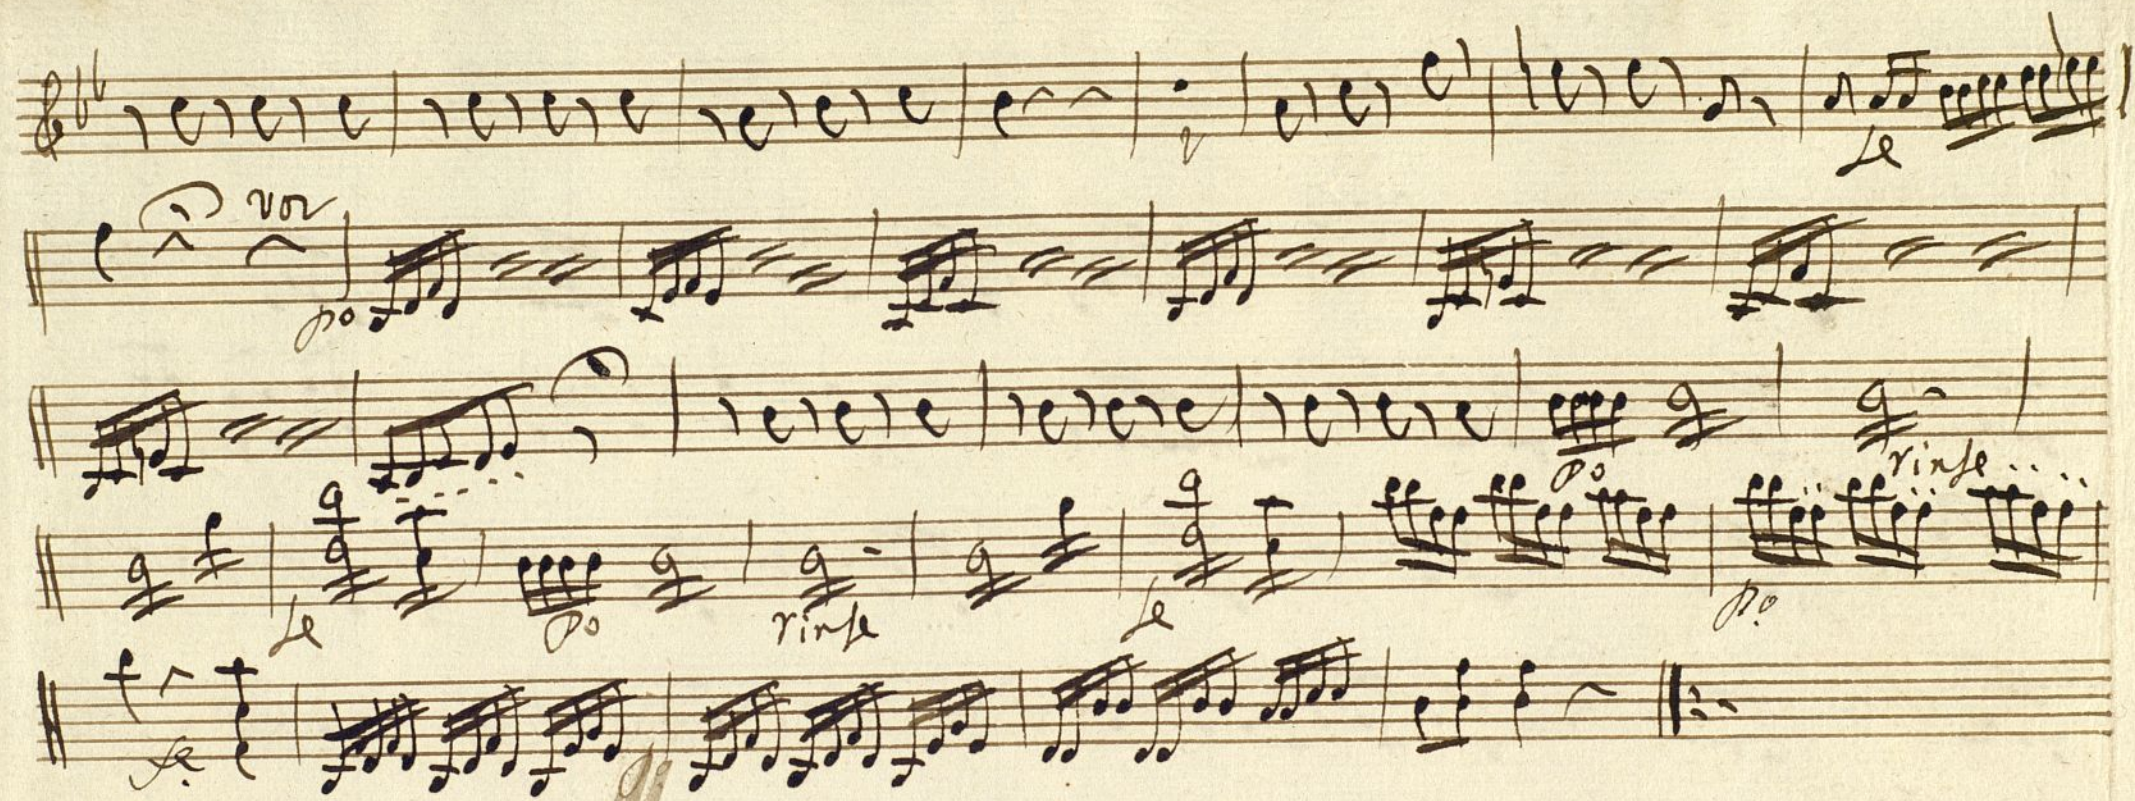 fe
vor
po
po rinfe
fe po rinfe fe po
fe.